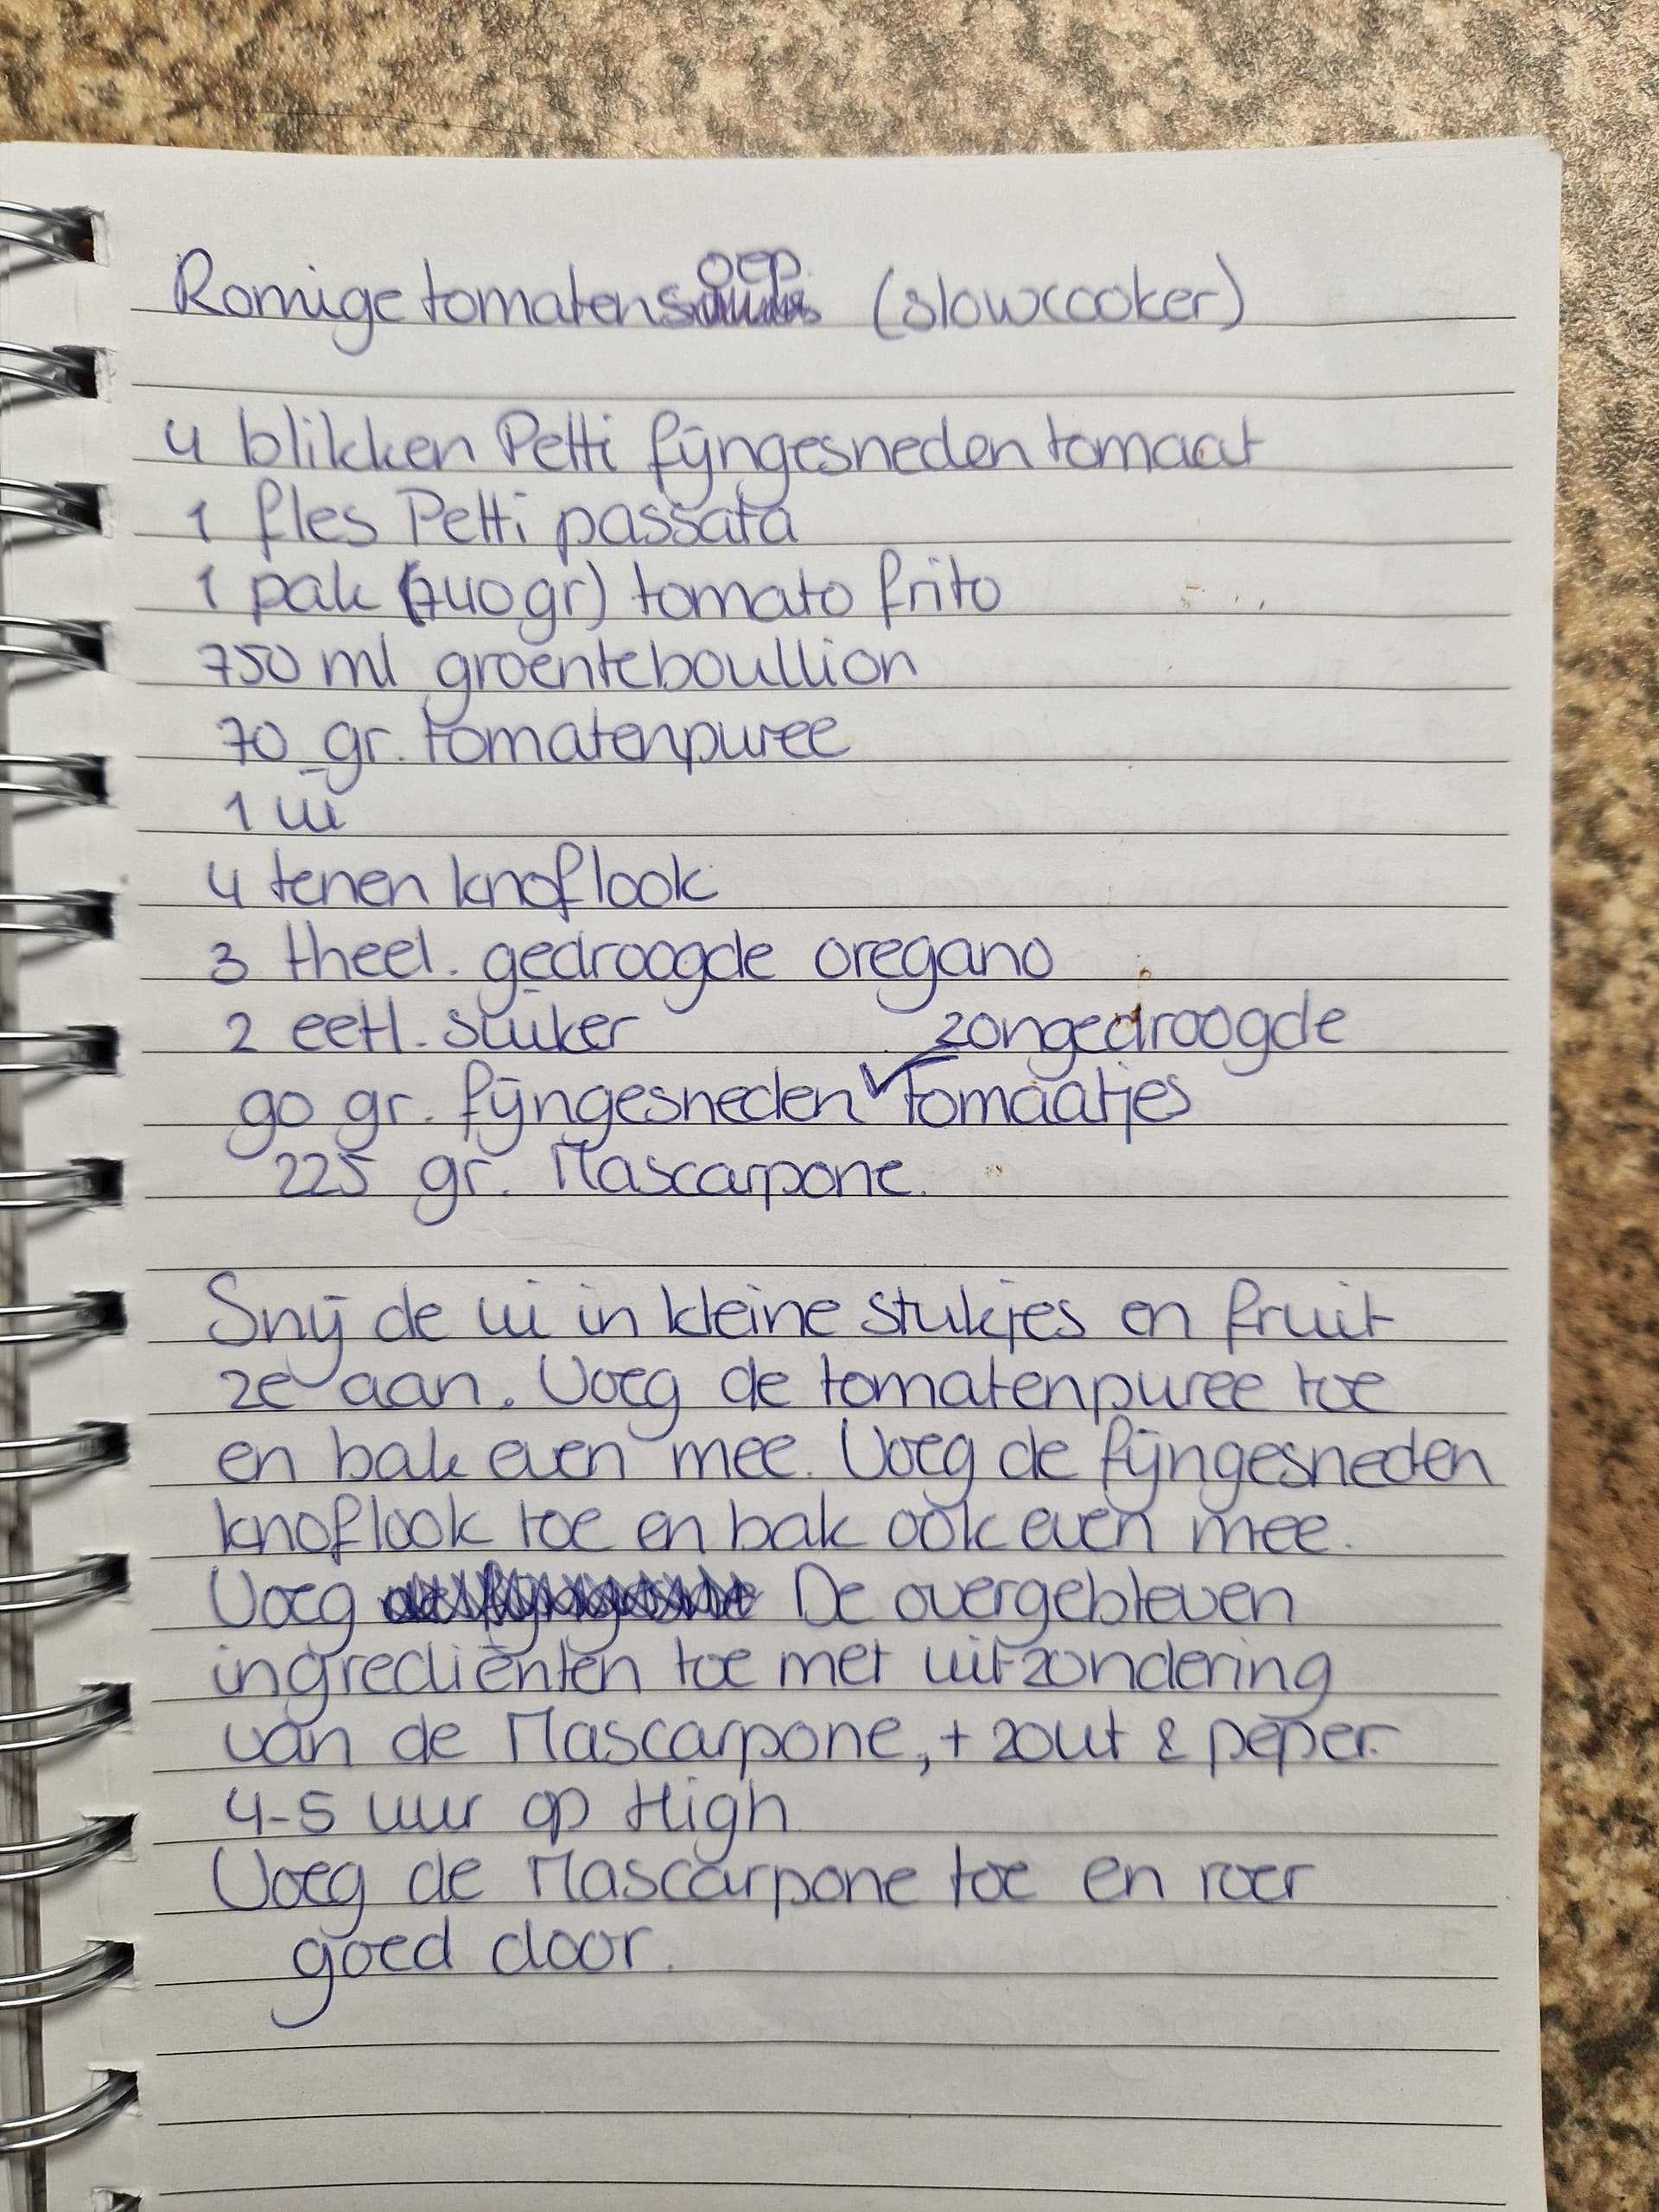 Romige tomatensoep (slowcooker)
4 blikken Petti fijngesneden tomaat
1 fles Petti passata
1 pak (740gr) tomato frito
750 ml groenteboullion
70 gr. tomatenpuree
1 ui
4 tenen knoflook
3 theel. gedroogde oregano
2 eetl. suiker
90 gr. fijngesneden zongedroogde tomaatjes
225 gr. Mascarpone.
Snij de ui in kleine stukjes en fruit
ze aan. Voeg de tomatenpuree toe
en bak even mee. Voeg de fijngesneden
knoflook toe en bak ook even mee.
Voeg De overgebleven
ingrediënten toe met uitzondering
van de Mascarpone, + zout & peper.
4-5 uur op High
Voeg de Mascarpone toe en roer
goed door.